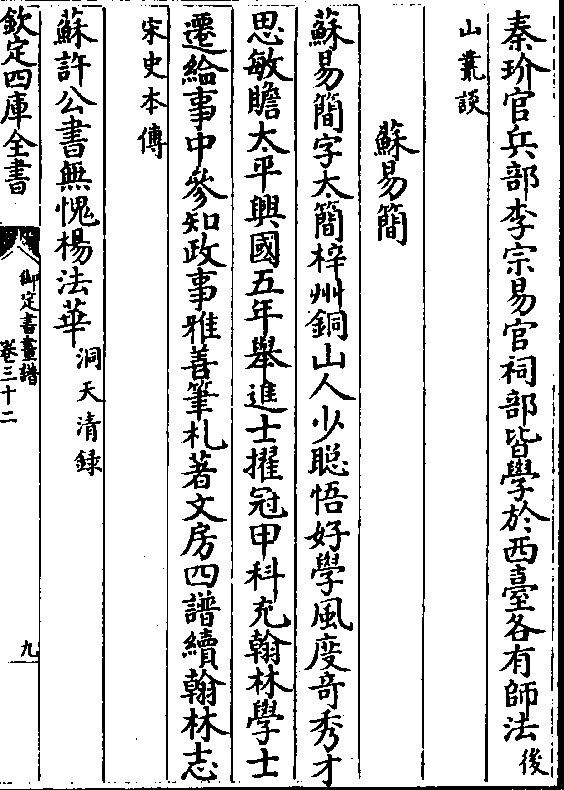 秦玠官兵部李宗易官祠部皆學於西臺各有師法後
山叢談
蘇易簡
蘇易簡字太簡梓州銅山人少聰悟好學風度竒秀才
思敏贍太平興國五年舉進士擢冠甲科充翰林學士
遷給事中參知政事雅善筆札著文房四譜續翰林志
宋史本傳
蘇許公書無愧楊法華洞天清録
欽定四庫全書
御定書畫譜
卷三十二
九